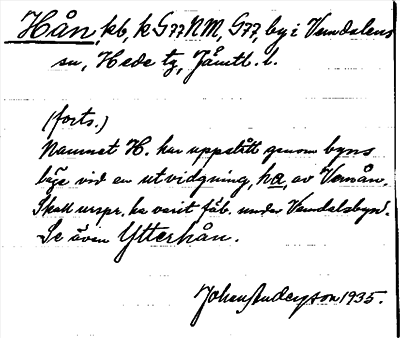 Hån, kb, k G77 NM, G77, by i Vemdalens
sn, Hede tg, Jämtl. l.
(forts.)
Namnet H. har uppstått genom byns
läge vid en utvidgning, ha, av Vemån.
Skall urspr. ha varit fäb. under Vemdalsbyn.
Se även Ytterhån.
Johan Anderson 1935.